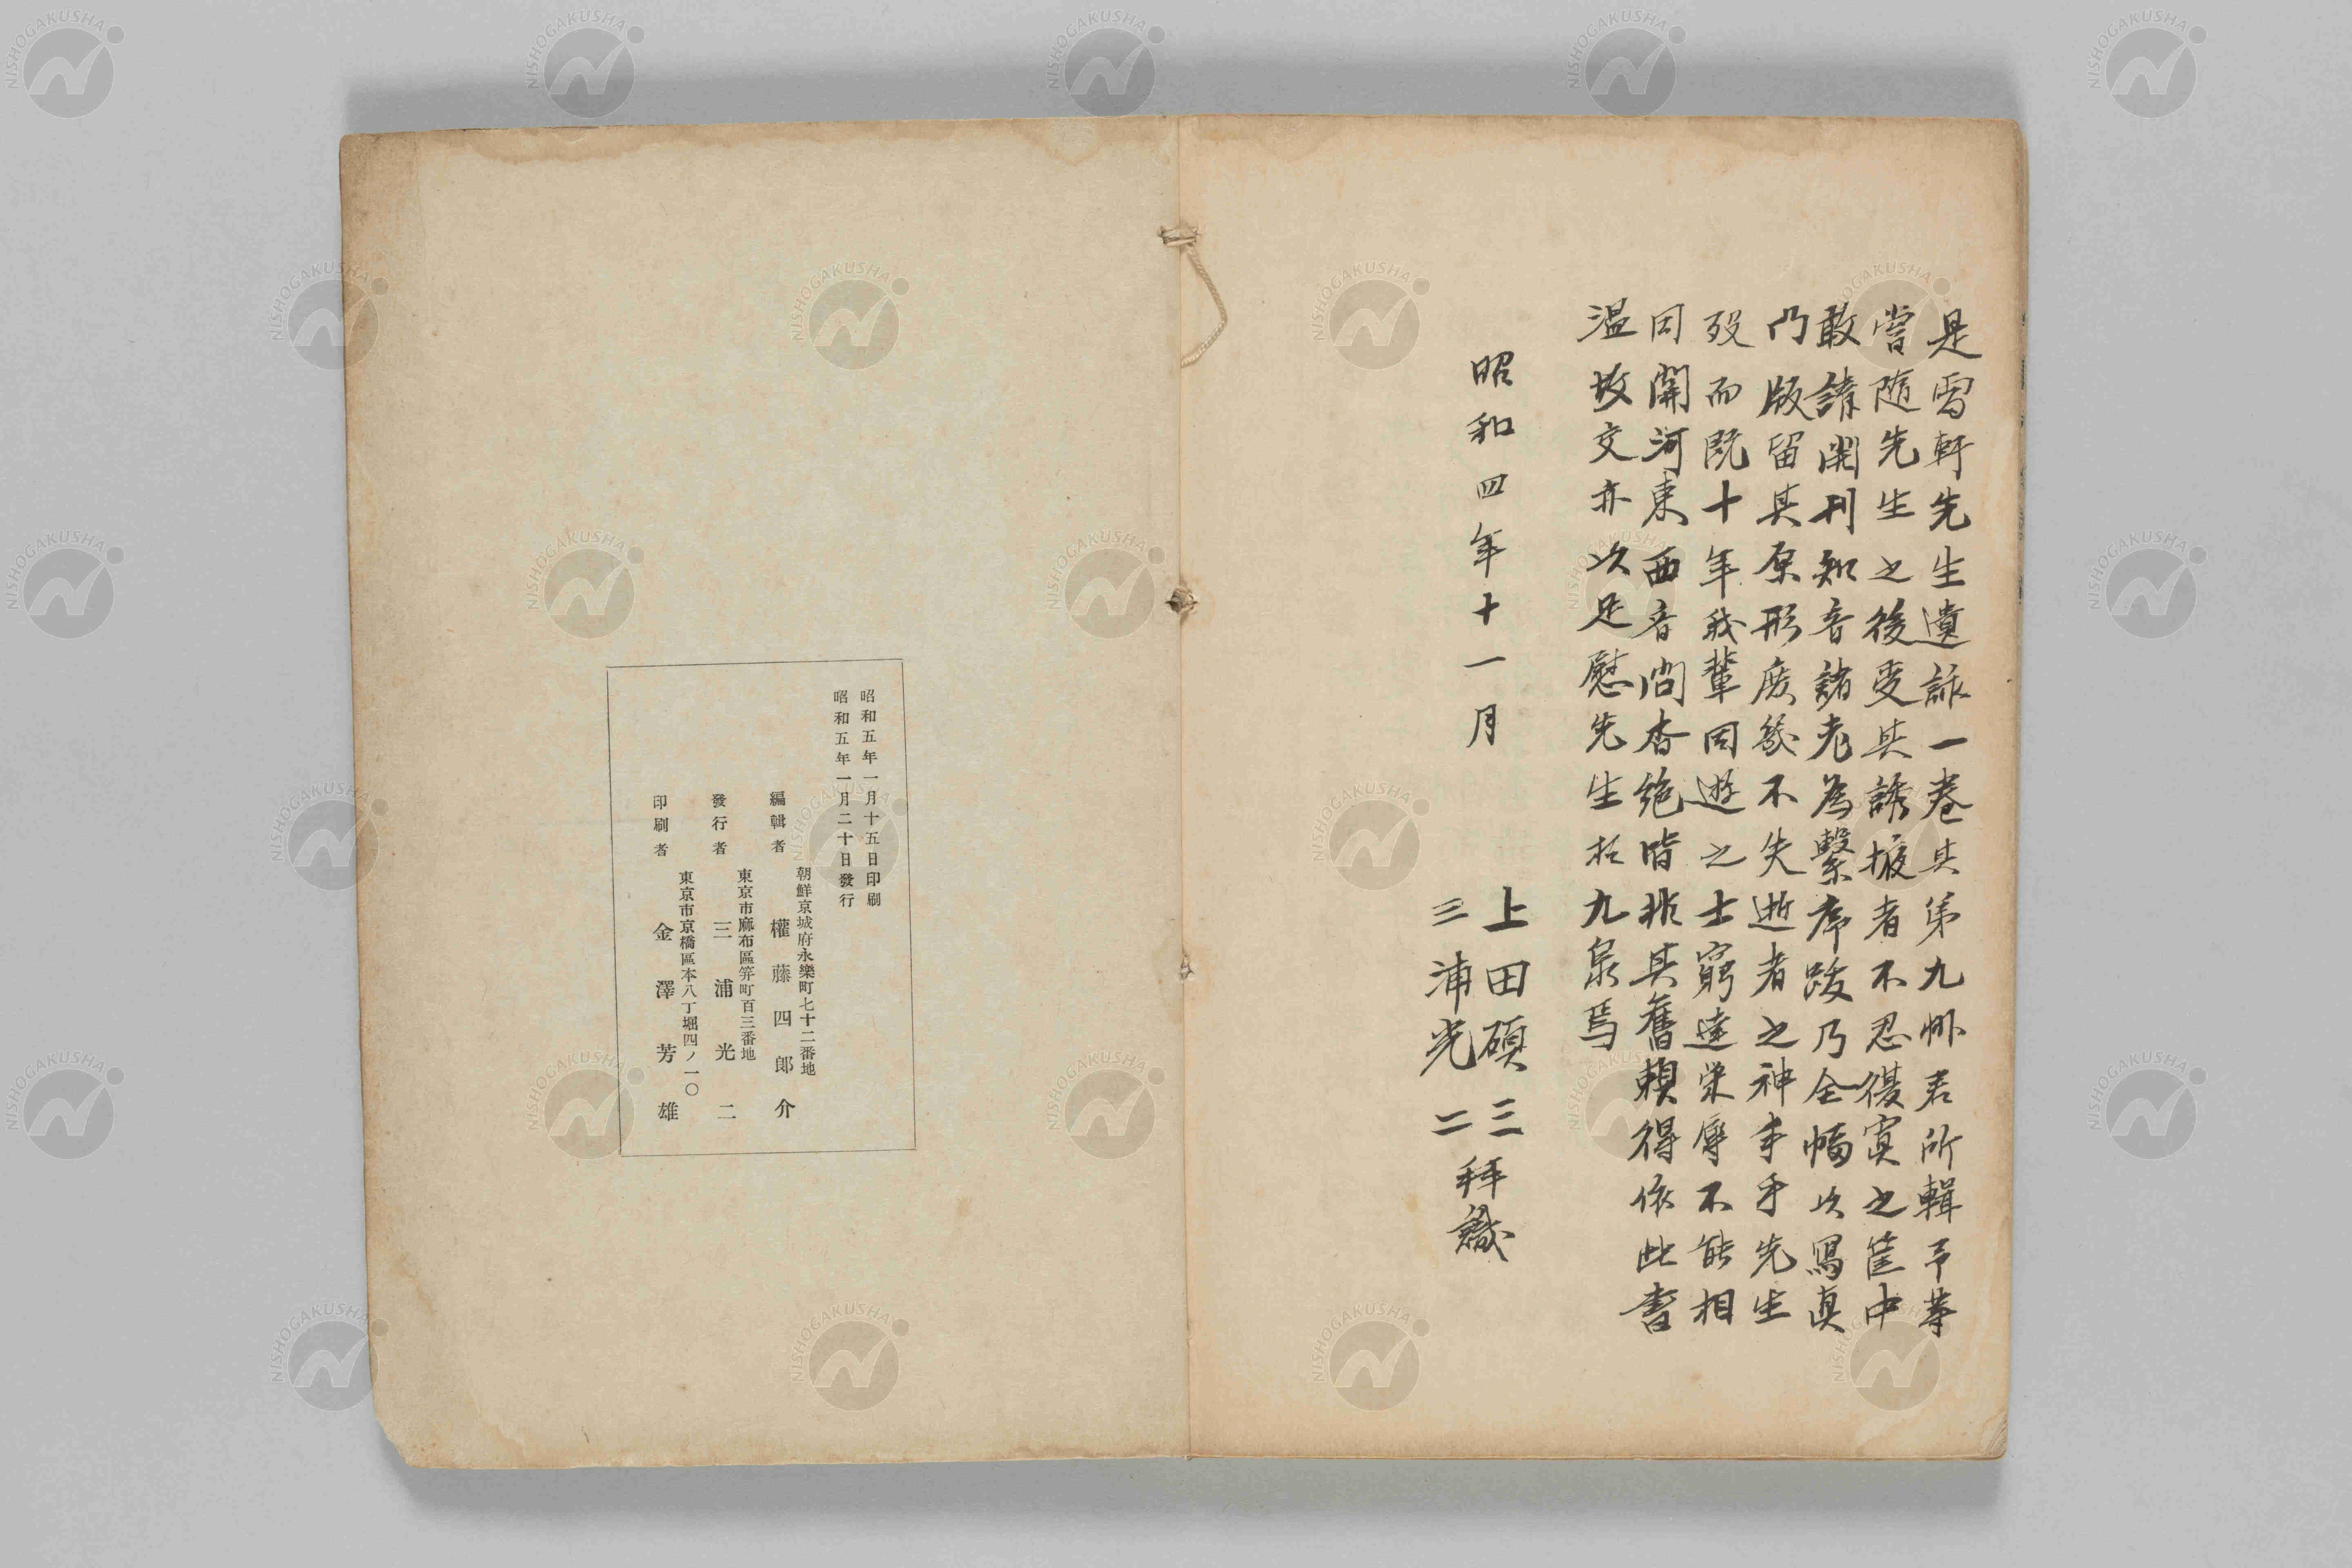 是雪軒先生遺詠一卷其弟九州君所輯予等
嘗隨先生之後受其誘掖者不忍復寘之筐中
敢請開刊知音諸老為繫序跋乃全幅以寫真
凸版留其原形庶幾不失逝者之神乎乎先生
歿而既十年我輩同遊之士窮達榮辱不能相
同關河東西音問杳絕皆非其舊賴得依此書
溫故交亦以足慰先生於九泉焉
昭和四年十一月
上田碩三
三浦光二 拜識
昭和五年一月十五日印刷
昭和五年一月二十日發行
朝鮮京城府永樂町七十二番地
編輯者 權藤四郎介
東京市麻布區笄町百三番地
發行者 三浦光二
東京市京橋區本八丁堀四ノ一〇
印刷者 金澤芳雄
NISHOGAKUSHA